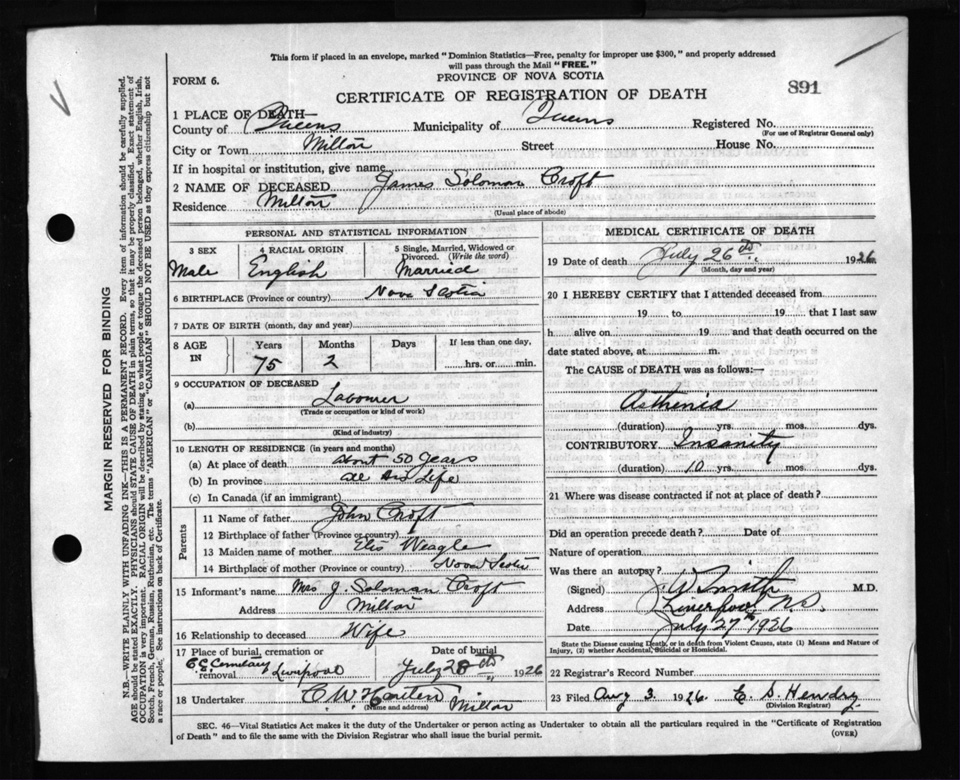 This form if placed in an envelope, marked "Dominion Statistics—Free, penalty for improper use $300," and properly addressed
will pass through the Mail "FREE."
FORM 6.
PROVINCE OF NOVA SCOTIA
CERTIFICATE OF REGISTRATION OF DEATH
891
1 PLACE OF DEATH—
County of Queens Municipality of Queens Registered No.
(For use of Registrar General only)
City or Town Milton Street House No.
If in hospital or institution, give name
2 NAME OF DECEASED James Soloman Croft
Residence Milton
(Usual place of abode)
PERSONAL AND STATISTICAL INFORMATION
3 SEX 4 RACIAL ORIGIN 5 Single, Married, Widowed or
Divorced. (Write the word)
Male English Married
6 BIRTHPLACE (Province or country) Nova Scotia
7 DATE OF BIRTH (month, day and year)
8 AGE IN Years Months Days If less than one day,
75 2 hrs. or min.
9 OCCUPATION OF DECEASED
(a) Labourer
(Trade or occupation or kind of work)
(b)
(Kind of industry)
10 LENGTH OF RESIDENCE (in years and months)
(a) At place of death about 50 years
(b) In province all his Life
(c) In Canada (if an immigrant)
Parents
11 Name of father John Croft
12 Birthplace of father (Province or country)
13 Maiden name of mother Elis Weagle
14 Birthplace of mother (Province or country) Nova Scotia
15 Informant's name Mrs J. Soloman Croft
Address Milton
16 Relationship to deceased Wife
17 Place of burial, cremation or removal Date of burial
C.E. Cemetary Liverpool July 28th 1926
18 Undertaker C. W. Milton
(Name and address)
MEDICAL CERTIFICATE OF DEATH
19 Date of death July 26th. 1926
(Month, day and year)
20 I HEREBY CERTIFY that I attended deceased from
19 to 19 that I last saw
h alive on 19 and that death occurred on
date stated above, at m.
The CAUSE of DEATH was as follows:—
Asthenia
(duration) yrs. mos. dys.
CONTRIBUTORY Insanity
(duration) 10 yrs. mos. dys.
21 Where was disease contracted if not at place of death?
Did an operation precede death? Date of
Nature of operation
Was there an autopsy?
(Signed) J. W Smith M.D.
Address Liverpool N.S.
July 27th 1926
State the Disease causing Death, or in death from Violent Causes, state (1) Means and Nature of
Injury, (2) whether Accidental, Suicidal or Homicidal.
22 Registrar's Record Number
23 Filed Aug 3. 1926. E. S. Hendry
(Division Registrar)
SEC. 46—Vital Statistics Act makes it the duty of the Undertaker or person acting as Undertaker to obtain all the particulars required in the "Certificate of Registration
of Death" and to file the same with the Division Registrar who shall issue the burial permit.
(OVER)
MARGIN RESERVED FOR BINDING
N.B.—WRITE PLAINLY WITH UNFADING INK—THIS IS A PERMANENT RECORD. Every item of information should be carefully supplied.
AGE should be stated EXACTLY. PHYSICIANS should STATE CAUSE OF DEATH in plain terms, so that it may be properly classified. Exact statement of
OCCUPATION is very important. RACIAL ORIGIN will be described by stating to what people or tongue the deceased person belonged, whether English, Irish,
Scotch, French, German, Russian, Ruthenian, etc. The terms "AMERICAN" or "CANADIAN" SHOULD NOT BE USED as they express citizenship but not
a race or people. See instructions on back of Certificate.